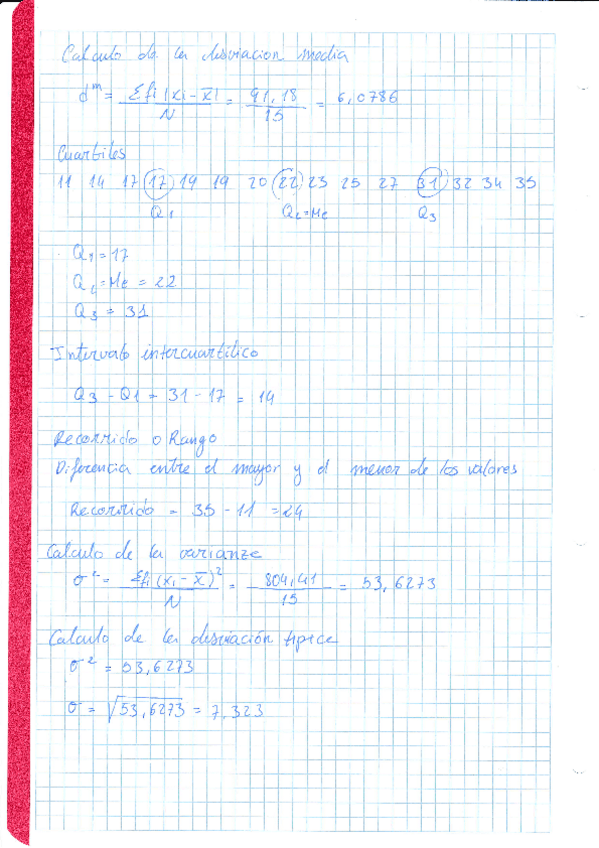 Calculo de la desviacion media
d^m = Σfi |xi - x̄| / N = 91,18 / 15 = 6,0786
Cuartiles
11 14 17 17 19 19 20 22 23 25 27 31 32 34 35
Q1 Q2=Me Q3
Q1 = 17
Q2 = Me = 22
Q3 = 31
Intervalo intercuartilico
Q3 - Q1 = 31 - 17 = 14
Recorrido o Rango
Diferencia entre el mayor y el menor de los valores
Recorrido = 35 - 11 = 24
Calculo de la varianza
σ² = Σfi (xi - x̄)² / N = 804,41 / 15 = 53,6273
Calculo de la desviación tipica
σ² = 53,6273
σ = √53,6273 = 7.323